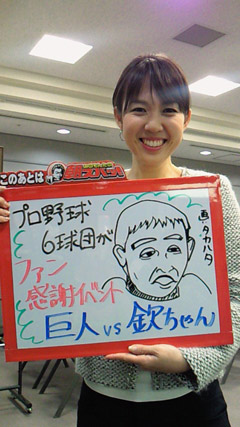 このあとは
プロ野球
6球団が
ファン
感謝イベント
巨人 vs 欽ちゃん
画・タカハタ